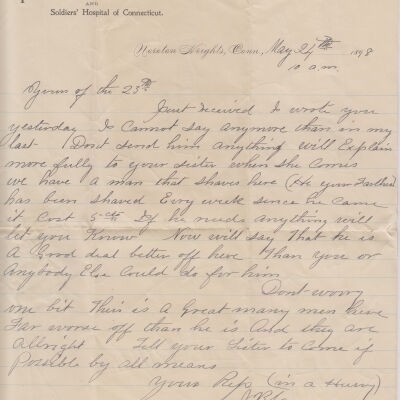 AND
Soldiers' Hospital of Connecticut.
Noroton Heights, Conn., May 24th 1898
10 a.m.
Yours of the 23rd
Just received I wrote you
yesterday I Cannot say anymore than in my
last Dont send him anything will Explain
more fully to your sister when she Comes
we have a man that shaves here (He your Father)
has been shaved Evry week sence he Came
it Cost 5 cts If he needs anything will
let you Know Now will say that he is
A Good deal better off here Than you or
Anybody Else Could do for him
Dont worry
one bit Their is A Great many men here
Far worse off than he is And they are
Allright Tell your Sister to Come if
Possible by all means
Yours Resp (in a Hurry)